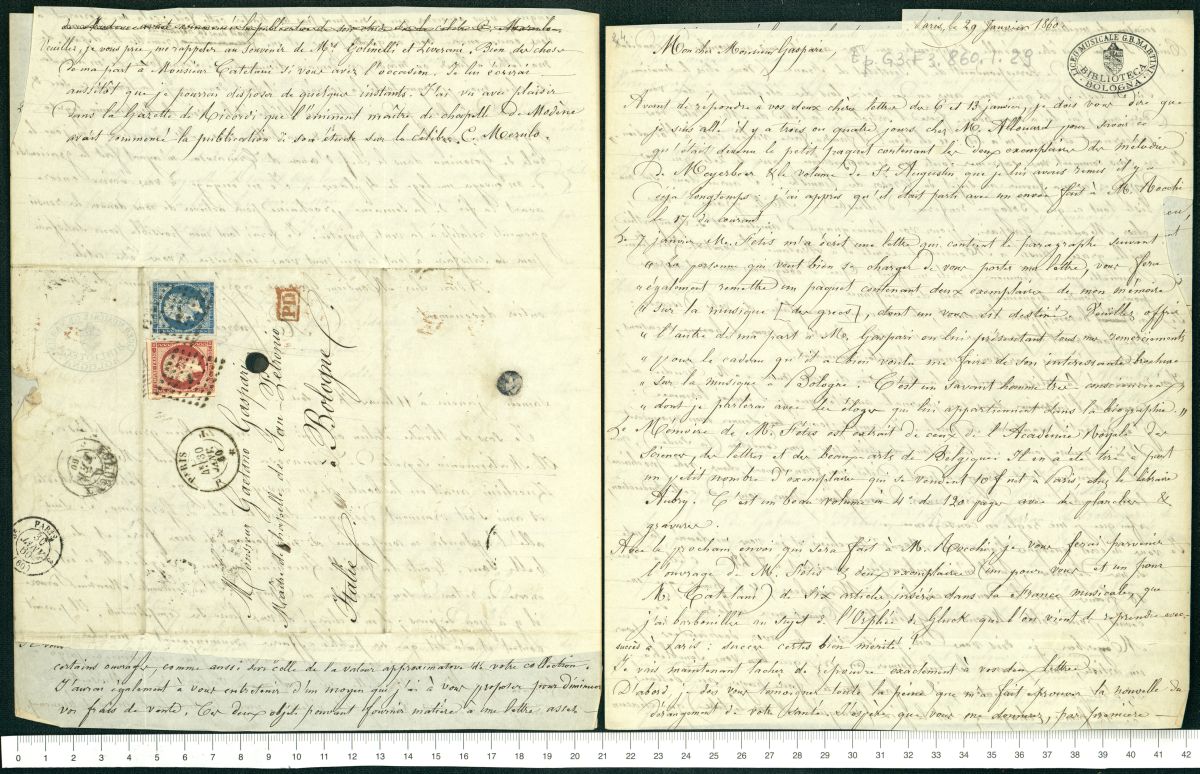 Veuillez, je vous prie, me rappeler au souvenir de Mrs Golinelli et Liverani. Bien des choses
de ma part à Monsieur Catelani si vous avez occasion. Je lui écrirai
aussitôt que je pourrai disposer de quelques instants. J'ai vu avec plaisir
dans la Gazette de Ricordi que l'éminent maître de chapelle de Modène
avait commencé la publication de son étude sur le célèbre C. Merulo.
PD
Monsieur Gaetano Gaspari
Maître de chapelle de San Petronio
à Bologne
Italie
PARIS
30
JANV.
60
PARIS
certains ouvrages, comme aussi sur celle de la valeur approximative de votre collection.
J'aurai également à vous entretenir d'un moyen que j'ai à vous proposer pour diminuer
vos frais de vente. Ces deux objets pouvant fournir matière à une lettre assez
Paris, le 29 Janvier 1860
Mon cher Monsieur Gaspari
LICEO MUSICALE G.B. MARTINI
BIBLIOTECA
BOLOGNA
Avant de répondre à vos deux chères lettres du 6 et 13 janvier, je dois vous dire que
je suis allé il y a trois ou quatre jours chez M. Allouard pour savoir ce
qu'était devenu le petit paquet contenant les deux exemplaires des mélodies
de Meyerbeer & le volume de St Augustin que je lui avais remis il y a
déjà longtemps; j'ai appris qu'il était parti avec un envoi fait à M. Rocchi
le 17 du courant.
Le 7 janvier M. Fétis m'a écrit une lettre qui contient le paragraphe suivant
"La personne qui veut bien se charger de vous porter ma lettre, vous fera
"également remettre un paquet contenant deux exemplaires de mon mémoire
"sur la musique (des grecs), dont un vous est destiné. Veuillez offrir
"l'autre de ma part à M. Gaspari en lui présentant tous mes remerciements
"pour le cadeau qu'il a bien voulu me faire de son intéressante brochure
"sur la musique à Bologne. C'est un savant homme très consciencieux,
"dont je parlerai avec les éloges qui lui appartiennent dans la biographie"
Le Mémoire de Mr Fétis est extrait de ceux de l'Académie Royale des
Sciences, des lettres et des beaux-arts de Belgique. Il en a été tiré à part
un petit nombre d'exemplaires qui se vendent 10 f net à Paris chez le libraire
Aubry. C'est un beau volume in 4° de 120 pages avec des planches &
gravures.
Avec le prochain envoi qui sera fait à M. Rocchi, je vous ferai parvenir
l'ouvrage de M. Fétis & deux exemplaires (un pour vous et un pour
M. Catelani) de six articles insérés dans la France musicale, que
j'ai barbouillés au sujet de l'Orphée de Gluck que l'on vient de reprendre avec
succès à Paris: succès certes bien mérité!
Je vais maintenant tâcher de répondre exactement à vos deux lettres.
D'abord je dois vous témoigner toute la peine que m'a fait éprouver la nouvelle du
dérangement de votre santé. J'espère que vous me donnerez, par première
0 1 2 3 4 5 6 7 8 9 10 11 12 13 14 15 16 17 18 19 20 21 22 23 24 25 26 27 28 29 30 31 32 33 34 35 36 37 38 39 40 41 42